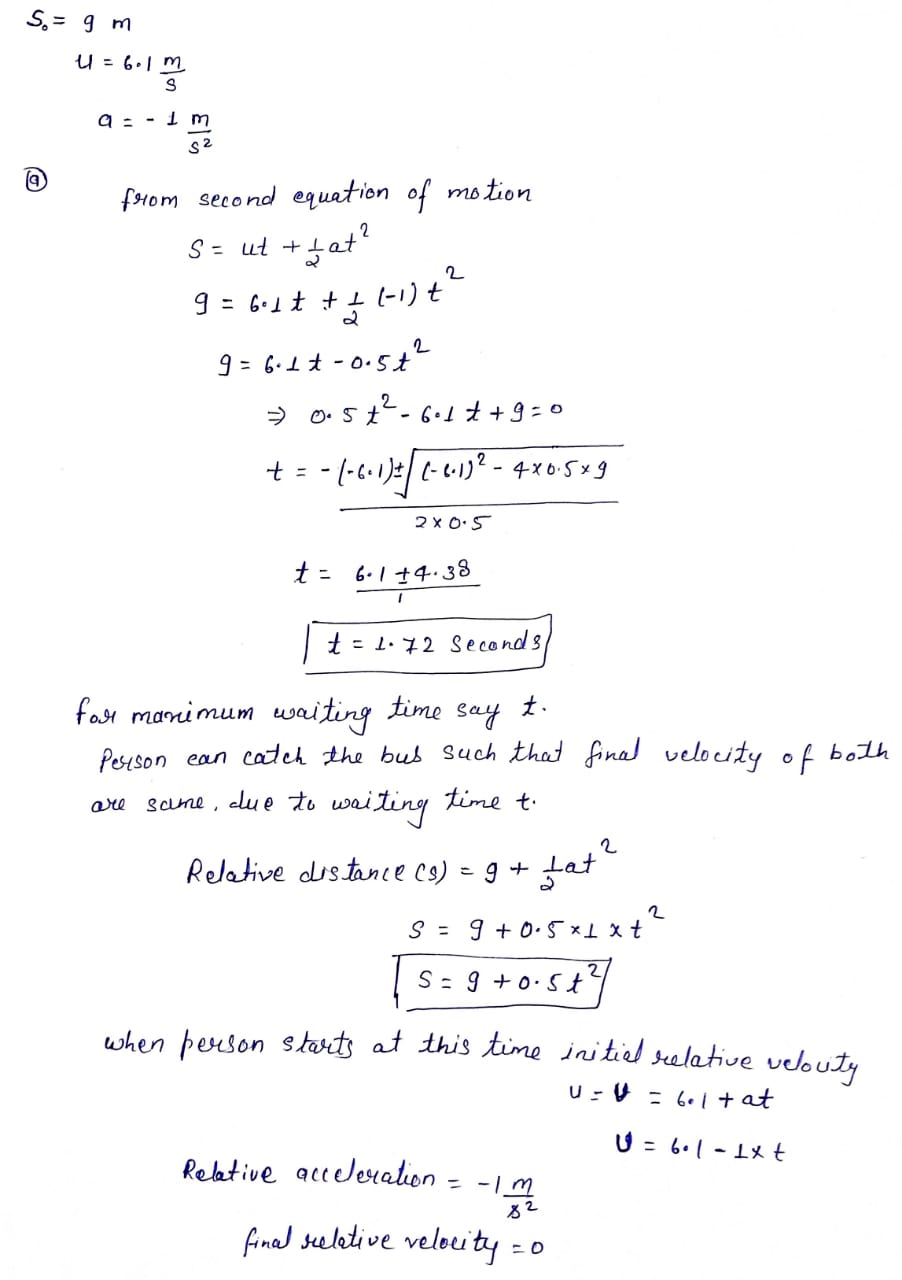 S₀ = 9 m
u = 6.1 m/s
a = - 1 m/s²
(a)
from second equation of motion
S = ut + 1/2 at²
9 = 6.1 t + 1/2 (-1) t²
9 = 6.1 t - 0.5 t²
⇒ 0.5 t² - 6.1 t + 9 = 0
t = -(-6.1) ± √((-6.1)² - 4 × 0.5 × 9) / 2 × 0.5
t = 6.1 ± 4.38 / 1
t = 1.72 Seconds
for maximum waiting time say t.
Person can catch the bus such that final velocity of both
are same, due to waiting time t.
Relative distance (s) = 9 + 1/2 at²
S = 9 + 0.5 × 1 × t²
S = 9 + 0.5 t²
when person starts at this time initial relative velouty
U = U = 6.1 + at
U = 6.1 - 1 × t
Relative acceleration = - 1 m/s²
final relative velocity = 0